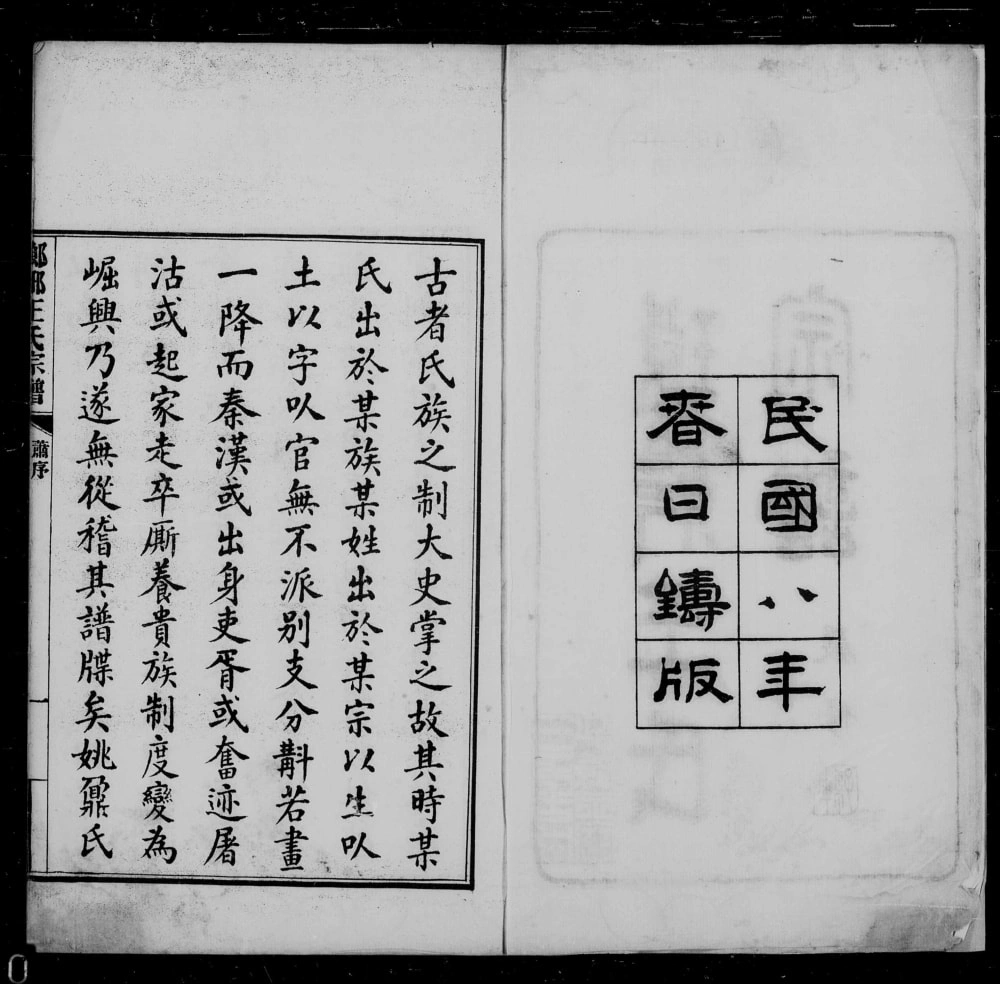 民國八年
春日鑄版
古者氏族之制大史掌之故其時某
氏出於某族某姓出於某宗以生㕥
土以字㕥官無不派别支分斠若畫
一降而秦漢或出身吏胥或奮迹屠
沽或起家走卒厮養貴族制度變為
崛興乃遂無從稽其譜牒矣姚鼐氏
瑯琊王氏宗譜
蕭序
一